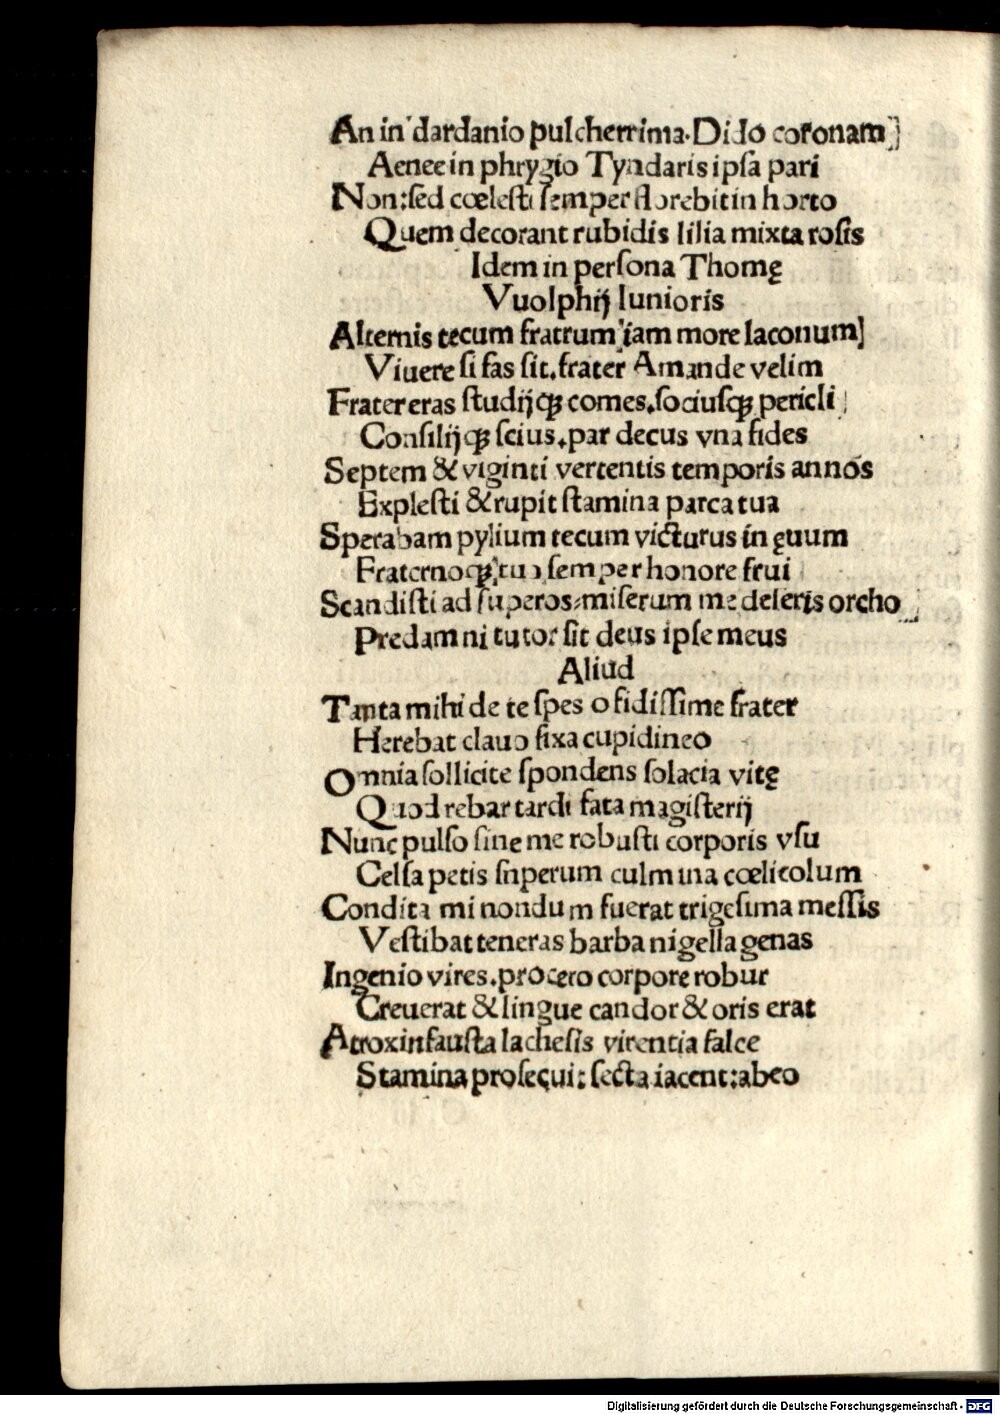 An in dardanio pulcherrima. Dido coronam
Aenee in phrygio Tyndaris ipsa pari
Non: sed cœlesti semper florebit in horto
Quem decorant rubidis lilia mixta rosis
Idem in persona Thomę
Vuolphij Iunioris
Alternis tecum fratrum iam more laconum
Viuere si fas sit. frater Amande velim
Frater eras studijqꝫ comes. sociusqꝫ pericli
Consilijqꝫ scius. par decus vna fides
Septem & viginti vertentis temporis annos
Explesti & rupit stamina parca tua
Sperabam pylium tecum victurus in ęuum
Fraternoqꝫ tuo semper honore frui
Scandisti ad superos: miserum me deseris orcho
Predam ni tutor sit deus ipse meus
Aliud
Tanta mihi de te spes o fidissime frater
Herebat clauo fixa cupidineo
Omnia sollicite spondens solacia vitę
Quod rebar tardi fata magisterij
Nunc pulso sine me robusti corporis vsu
Celsa petis snperum culmina cœlicolum
Condita mi nondum fuerat trigesima messis
Vestibat teneras barba nigella genas
Ingenio vires. procero corpore robur
Creuerat & lingue candor & oris erat
Atrox infausta lachesis virentia falce
Stamina proseçui: secta iacent: abeo
Digitalisierung gefördert durch die Deutsche Forschungsgemeinschaft - DFG